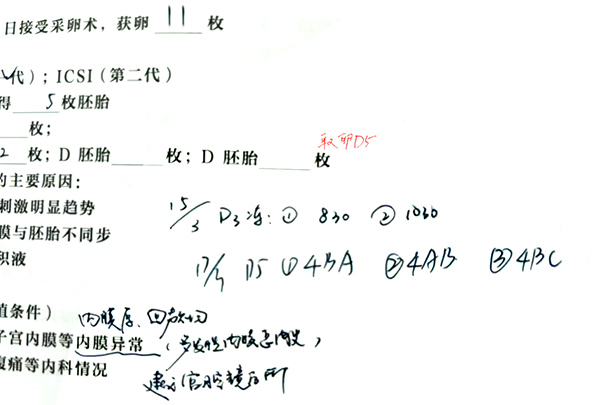 日接受采卵术，获卵 11 枚
代）；ICSI（第二代）
得 5 枚胚胎
枚；
2 枚；D 胚胎 枚；D 胚胎 枚
取卵D5
的主要原因：
刺激明显趋势
15/3 D3冻：① 830 ② 1030
膜与胚胎不同步
积液
17/3 D5 ①4BA ②4AB ③4BC
值条件）
内膜厚、回声
子宫内膜等内膜异常（多发性内膜息肉
腹痛等内科情况
建议宫腔镜